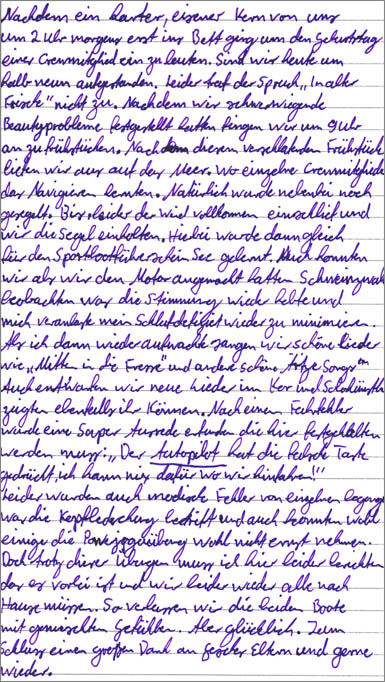 Nachdem ein harter, eiserner Kern von uns
um 2 Uhr morgens erst ins Bett ging um den Geburtstag
einer Crewmitglied ein zu leuten. Sind wir heute um
halb neun aufgestanden. Leider traf der Spruch „In alter
Frische" nicht zu. Nachdem wir schwerwiegende
Beautyprobleme festgestellt hatten fingen wir um 9 Uhr
an zu frühstücken. Nach diesem verschlafenen Frühstück
liefen wir aus auf das Meer. Wo einzelne Crewmitglieder
das Navigieren lernten. Natürlich wurde nebenbei noch
gesegelt. Bis leider der Wind vollkommen einschlief und
wir die Segel einholten. Hierbei wurde dann gleich
für den Sportbootführerschein See gelernt. Auch konnten
wir als wir den Motor angemacht hatten Schweinswale
beobachten was die Stimmung wieder hebte und
mich veranlaste mein Schlafdefizit wieder zu minimieren.
Als ich dann wieder aufwachte sangen wir schöne Lieder
wie „Mitten in die Fresse" und andere schöne Songs
Auch entwarfen wir neue Lieder im Kor und Solokünstler
zeigten ebenfalls ihr Können. Nach einem Fahrfehler
wurde eine Super Ausrede erfunden die hier festgehalten
werden muss: „Der Autopilot hat die falsche Taste
gedrückt, ich kann nix dafür wo wir hinfahren!"
Leider wurden auch modische Fehler von einzelnen begangen
was die Kopfbedeckung betrifft und auch konnten wohl
einige die wohl nicht ernst nehmen.
Doch trotz dieser Übungen muss ich hier leider berichten
das es vorbei ist und wir leider wieder alle nach
Hause müssen. So verlassen wir die beiden Boote
mit gemischten Gefühlen. Aber glücklich. Zum
Schluss einen großen Dank an Eltern und gerne
wieder.